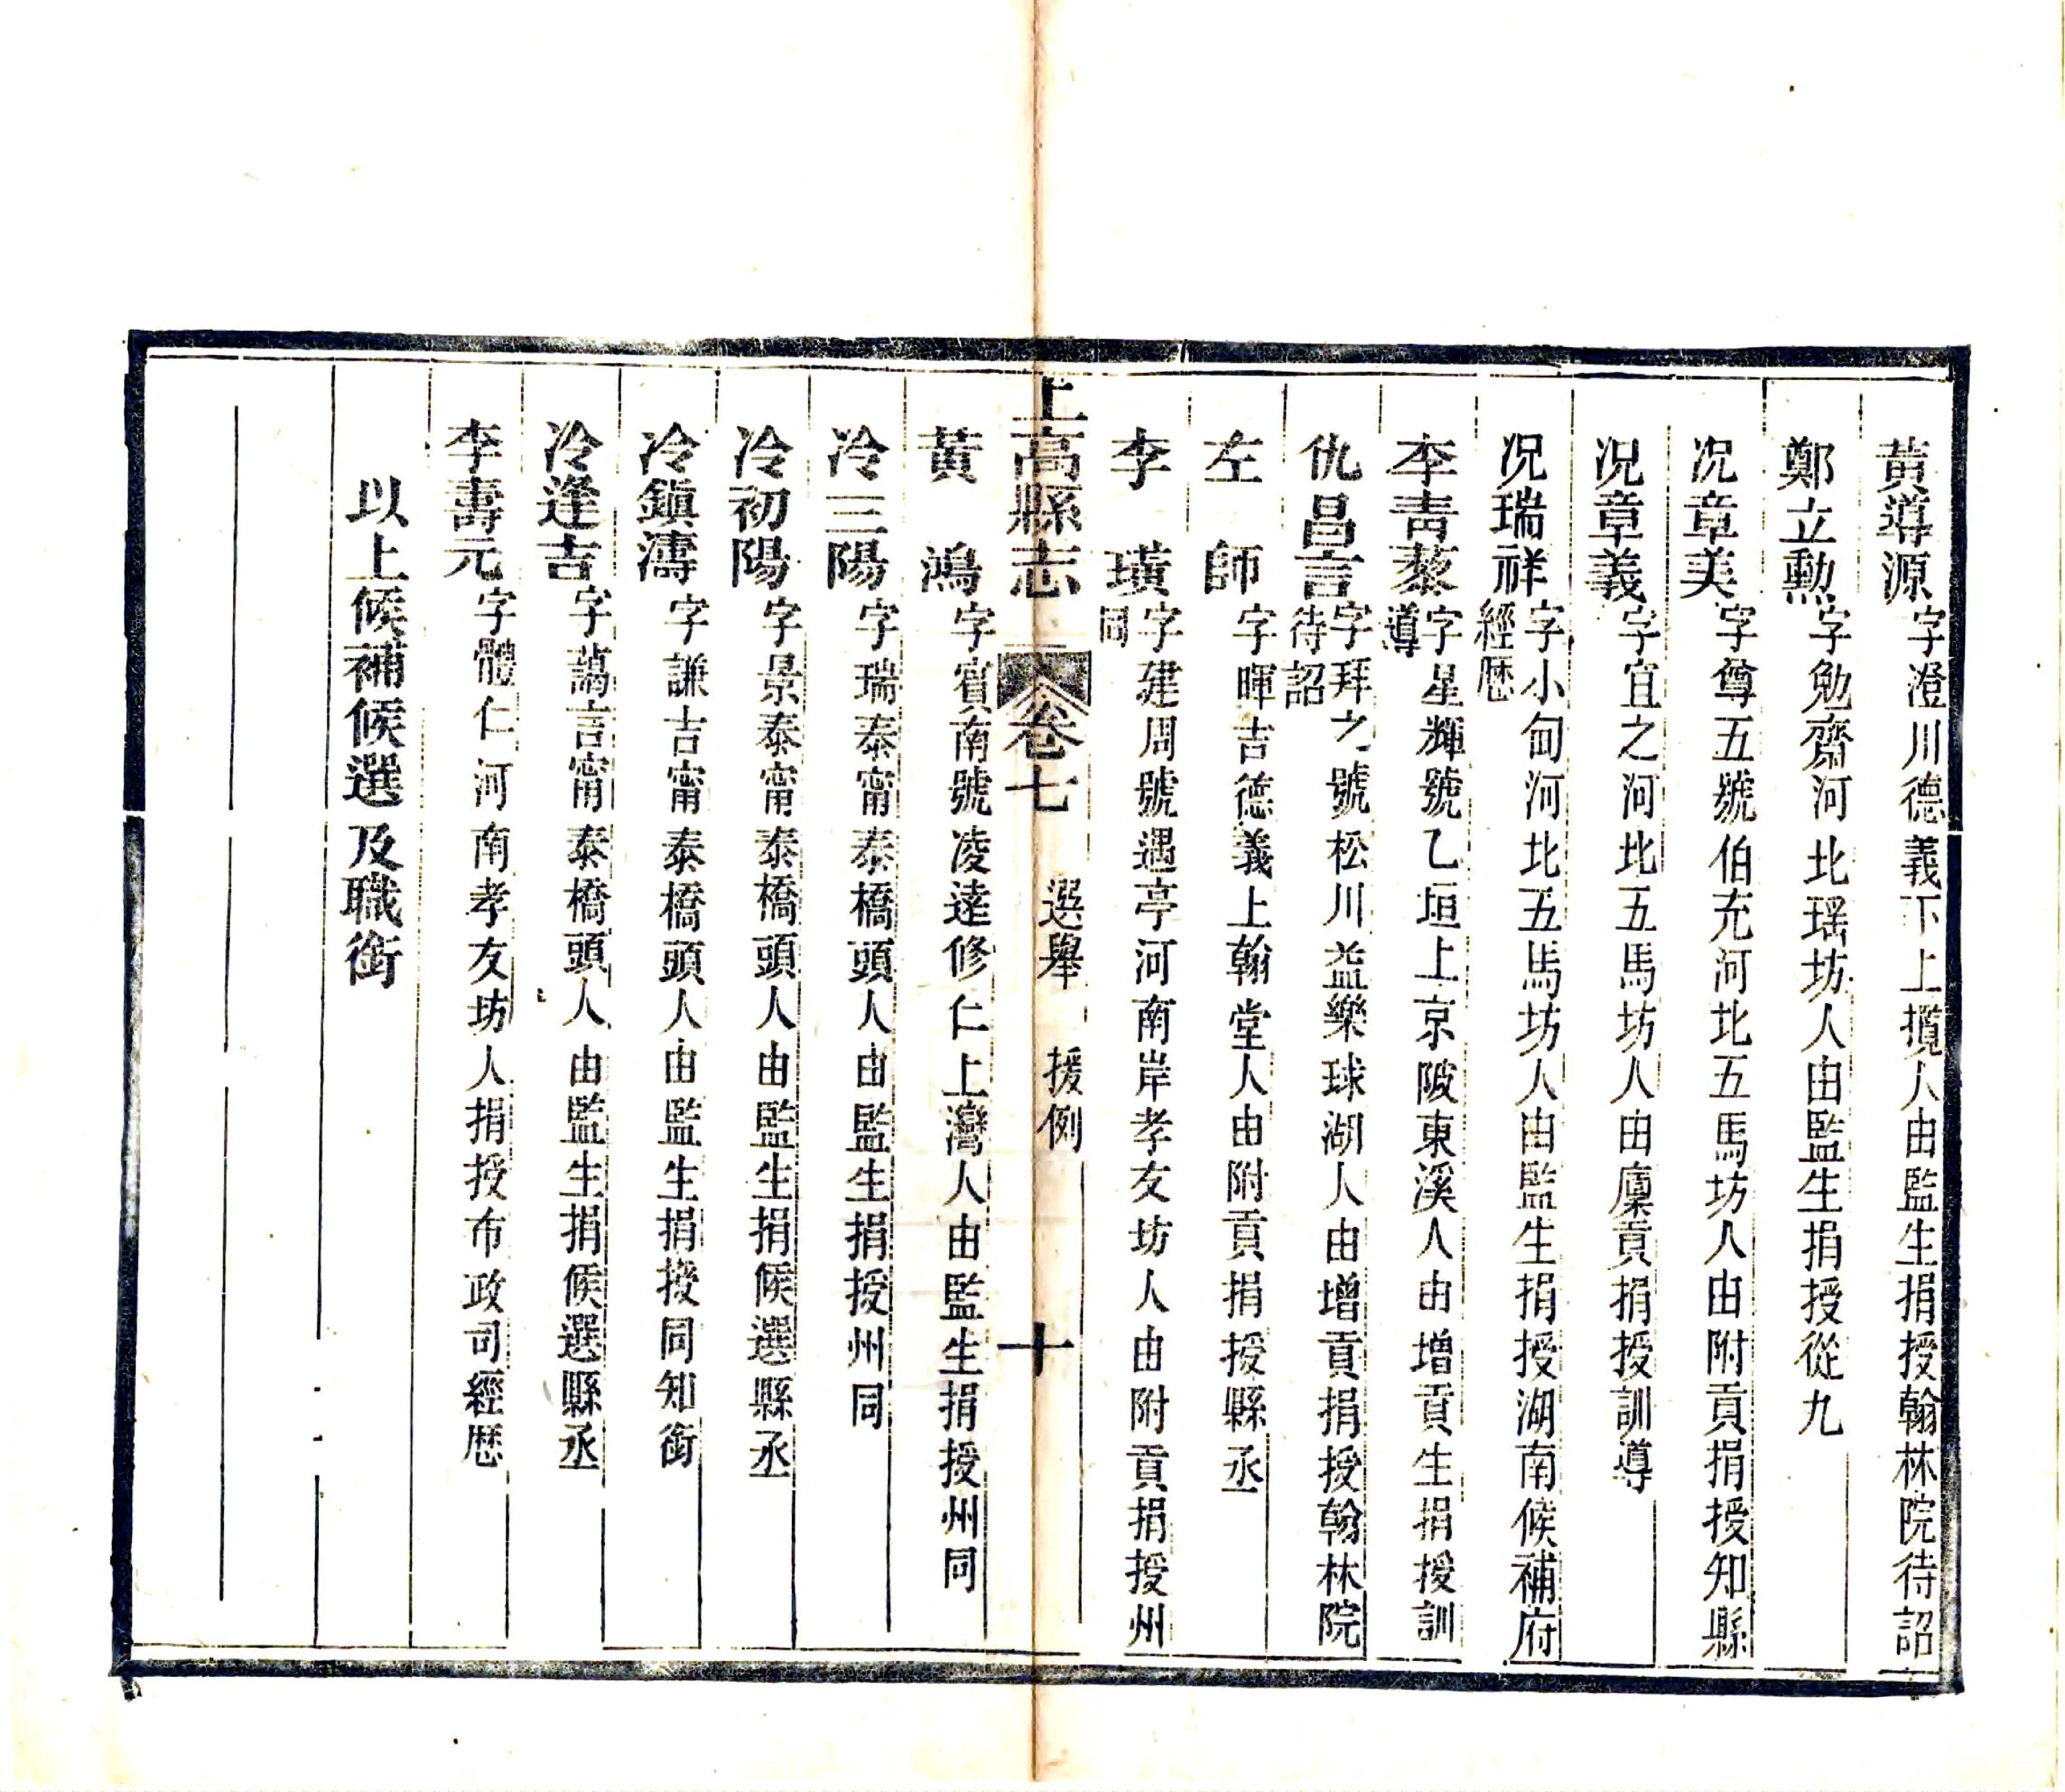 黃導源字澄川德義下上攬人由監生捐授翰林院待詔
鄭立勲字勉齋河北瑶坊人由監生捐授從九
况章美字尊五號伯充河北五馬坊人由附貢捐授知縣
况章義字宜之河北五馬坊人由廩貢捐授訓導
况瑞祥字小甸河北五馬坊人由監生捐授湖南候補府經歴
李青藜字星輝號乙垣上京陂東溪人由增貢生捐授訓導
仇昌言字拜之號松川益樂球湖人由增貢捐授翰林院待詔
左師字暉吉德義上翰堂人由附貢捐授縣丞
李璜字建周號遇亭河南岸孝友坊人由附貢捐授州同
上高縣志 卷七 選舉 援例 十
黃鴻字賓南號凌逵修仁上灣人由監生捐授州同
冷三陽字瑞泰甯泰橋頭人由監生捐授州同
冷初陽字景泰甯泰橋頭人由監生捐候選縣丞
冷鎮濤字謙吉甯泰橋頭人由監生捐授同知銜
冷逢吉字藹言甯泰橋頭人由監生捐候選縣丞
李壽元字體仁河南孝友坊人捐授布政司經歴
以上候補候選及職銜